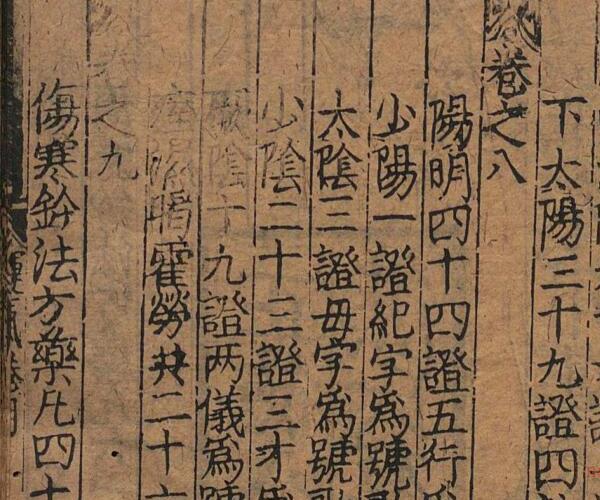 下太陽三十九證四
卷之八
陽明四十四證五行
少陽一證紀字為號
太陰三證毋字為號
少陰二十三證三才為
厥陰十九證两儀為號
霍勞共二十六
卷之九
傷寒鈐法方藥凡四十